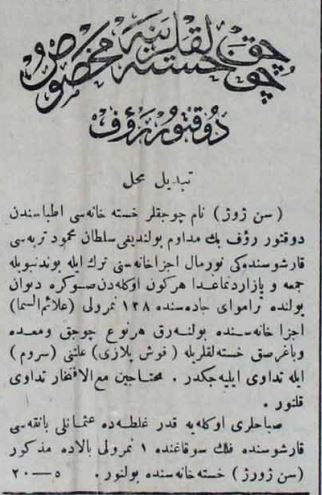 چوجق خسته‌لقلرینه مخصوص
دوقتور رؤف
تبدیل محل
(سن ژورژ) نام چوجقلر خسته خانه‌سی اطباسندن
دوقتور رؤف بك مداوم بولندیغی سلطان محمود تربه‌سی
قارشوسنده‌كی نورمال اجزاخانه‌سنی ترك ایله بوندنبویله
جمعه و پازاردنماعدا هركون اوكله‌دن صوكره دیوان
یولنده تراموای جاده‌سنده ۱۳۸ نمرولی (علائم السما)
اجزاخانه‌سنده بولنه‌رق هرنوع چوجق ومعده
وباغرصق خسته‌لقلریله (قوش پلازی) علتنی (سروم)
ایله تداوی ایلیه‌جكدر . محتاجین مع‌الافتخار تداوی
قلنور .
صباحلری اوكله‌یه قدر غلطه‌ده عثمانلی بانقه‌سی
قارشوسنده فلك سوقاغنده ۱ نمرولی بالاده مذكور
(سن ژورژ) خسته‌خانه‌سنده بولنور . ۵—۲۰